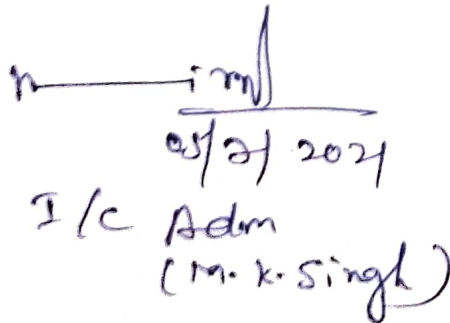 05/2/2021
I/C Adm
(M. K. Singh)